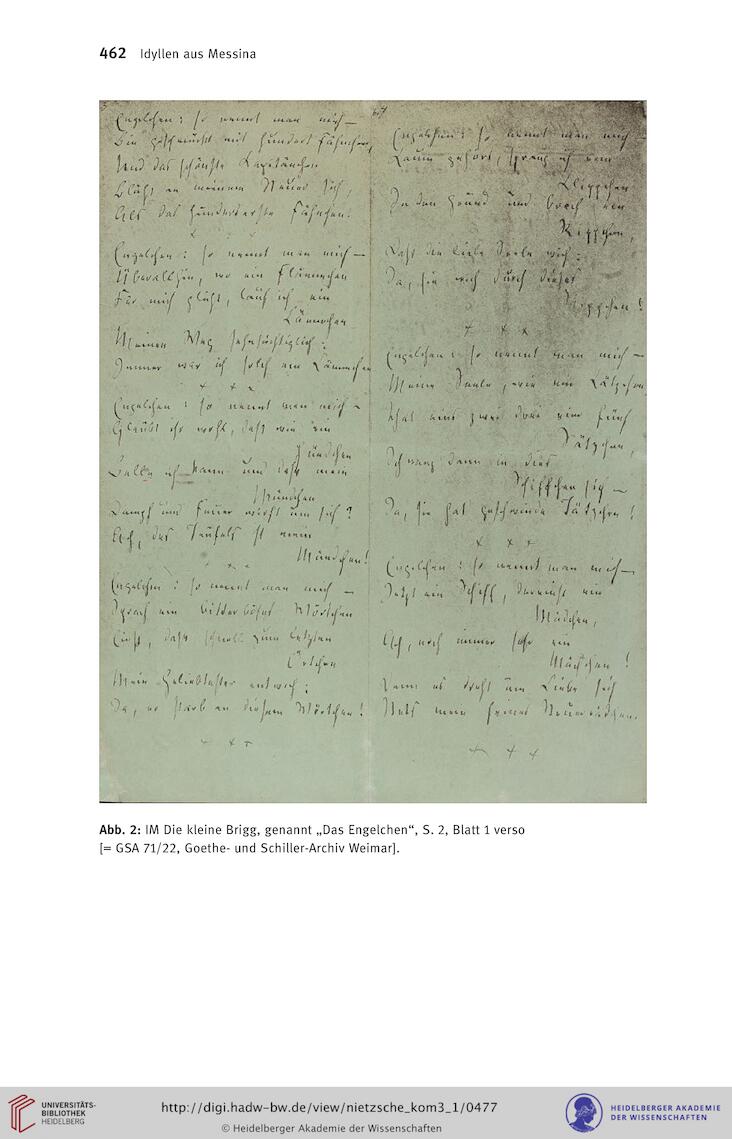 462 Idyllen aus Messina
Engelchen: so nennt man mich —
Bin geschmückt mit hundert Fähnchen,
Und das schönste Kapitänchen
Bläht an meinem Steuer sich,
Als das hunderterste Fähnchen.
Engelchen: so nennt man mich —
Überallhin, wo ein Flämmchen
Für mich glüht, lauf ich ein
Lämmchen
Meinen Weg sehnsüchtiglich:
Immer war ich solch ein Lämmchen
Engelchen: so nennt man mich —
Glaubt ihr wohl, daß wie ein
Hündchen
Bellen ich kann und daß mein
Mündchen
Dampf und Feuer wirft um sich?
Ach, des Teufels ist mein
Mündchen!
Engelchen: so nennt man mich —
Sprach ein bitterböses Wörtchen
Einst, daß schnell zum letzten
Örtchen
Mein Geliebtester entwich:
Ja, er starb an diesem Wörtchen!
Engelchen: so nennt man mich
Kaum gehört, sprang ich vom
Klippchen
In den Grund und brach ein
Rippchen,
Daß die liebe Seele wich:
Ja, sie wich durch dieses
Rippchen!
Engelchen: so nennt man mich —
Meine Seele, wie ein Kätzchen
That eins zwei drei vier fünf
Sätzchen,
Schwang dann in dies
Schiffchen sich —
Ja, sie hat geschwinde Tätzchen!
Engelchen: so nennt man mich —
Jetzt ein Schiff, dereinst ein
Mädchen,
Ach, noch immer sehr ein
Mädchen!
Denn es dreht um Liebe sich
Stets mein feines Steuerrädchen.
Abb. 2: IM Die kleine Brigg, genannt „Das Engelchen“, S. 2, Blatt 1 verso
[= GSA 71/22, Goethe- und Schiller-Archiv Weimar].
UNIVERSITÄTS-
BIBLIOTHEK
HEIDELBERG
http://digi.hadw-bw.de/view/nietzsche_kom3_1/0477
© Heidelberger Akademie der Wissenschaften
HEIDELBERGER AKADEMIE
DER WISSENSCHAFTEN